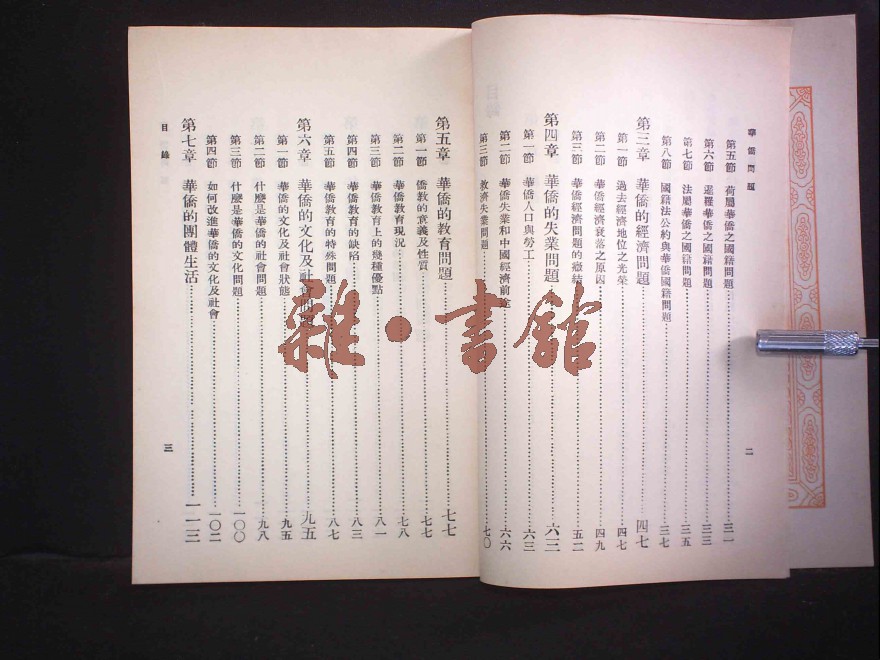 華僑問題
第五節 荷屬華僑之國籍問題 三一
第六節 暹羅華僑之國籍問題 三三
第七節 法屬華僑之國籍問題 三五
第八節 國籍法公約與華僑國籍問題 三七
第三章 華僑的經濟問題 四七
第一節 過去經濟地位之光榮 四七
第二節 華僑經濟衰落之原因 四九
第三節 華僑經濟問題的癥結 五二
第四章 華僑的失業問題 六三
第一節 華僑人口與勞工 六三
第二節 華僑失業和中國經濟前途 六六
第三節 救濟失業問題 七〇
二
第五章 華僑的教育問題 七七
第一節 僑教的意義及性質 七七
第二節 華僑教育現況 七八
第三節 華僑教育上的幾種優點 八一
第四節 華僑教育的缺陷 八三
第五節 華僑教育的特殊問題 八七
第六章 華僑的文化及社會問題 九五
第一節 華僑的文化及社會狀態 九五
第二節 什麼是華僑的社會問題 九八
第三節 什麼是華僑的文化問題 一〇〇
第四節 如何改進華僑的文化及社會 一〇二
第七章 華僑的團體生活 一一三
目錄
三
雜·書館